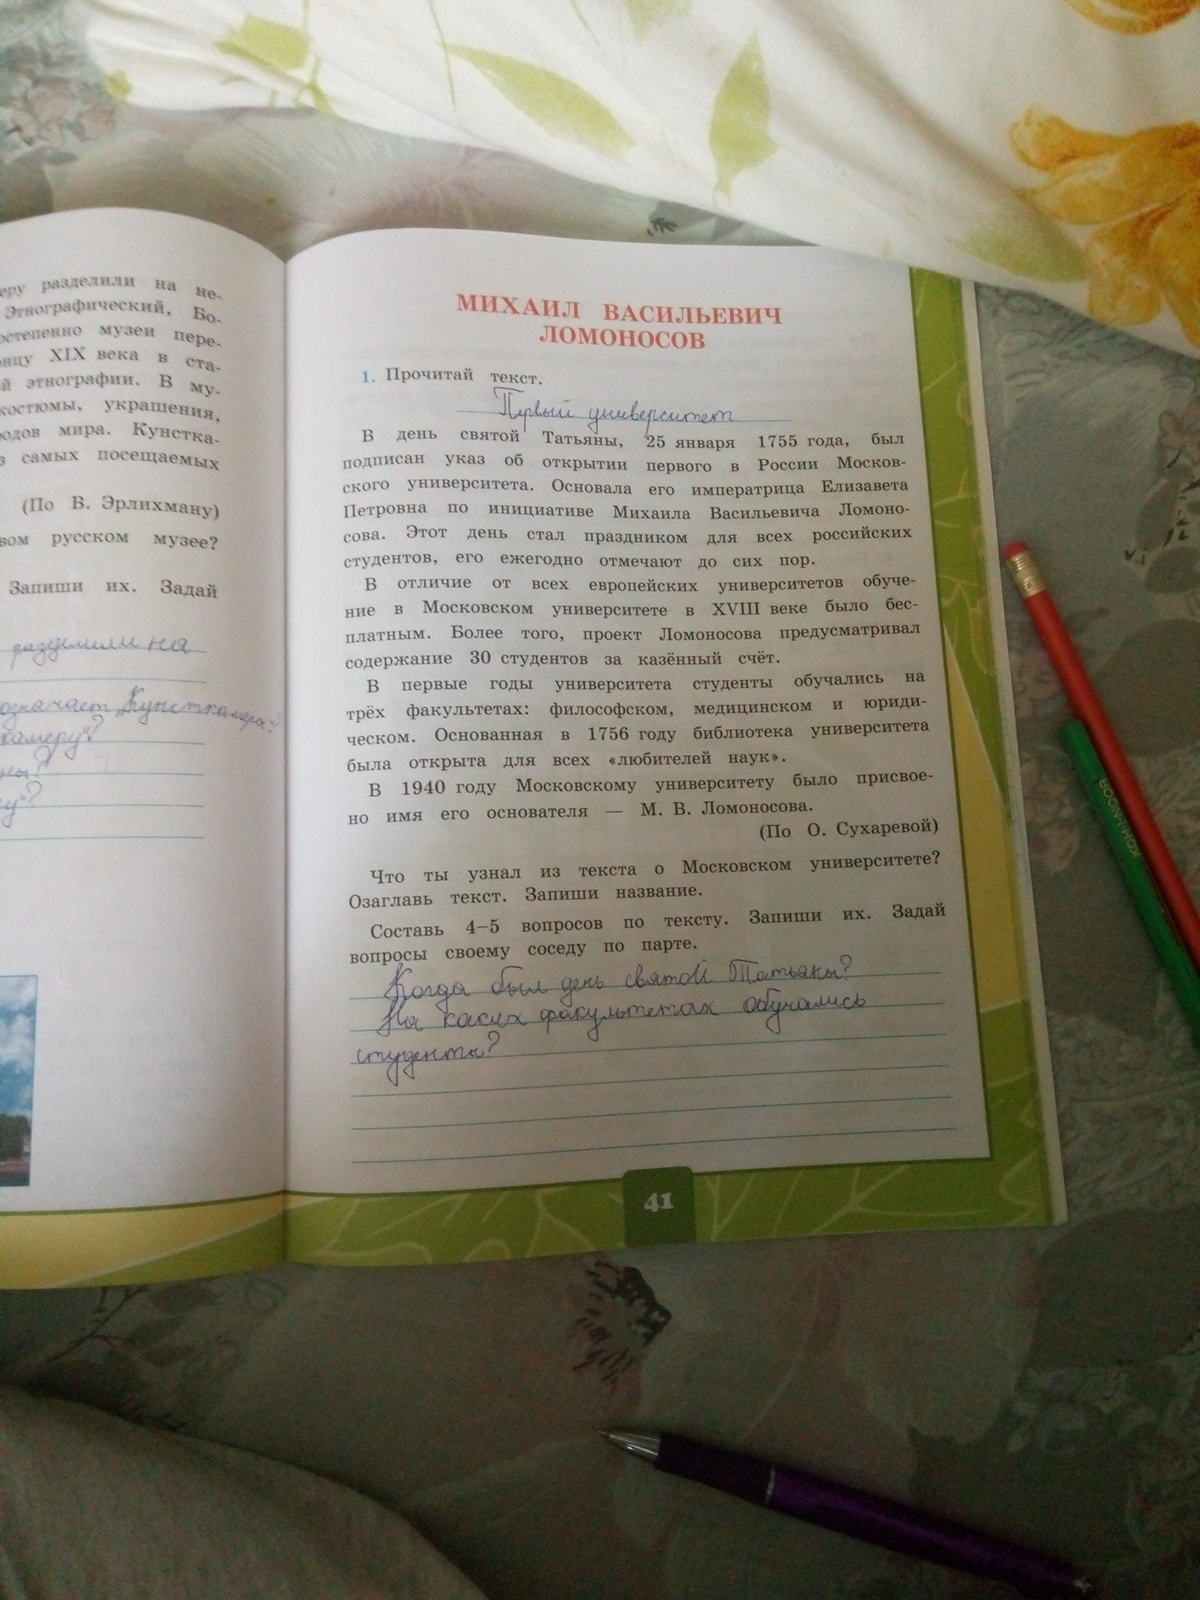 еру разделили на не-
Этнографический, Бо-
остепенно музеи пере-
онцу XIX века в ста-
й этнографии. В му-
костюмы, украшения,
родов мира. Кунстка-
з самых посещаемых
(По В. Эрлихману)
вом русском музее?
Запиши их. Задай
разделили на
означает „Кунсткамера"?
камеру"?
ны?
у"?
МИХАИЛ ВАСИЛЬЕВИЧ
ЛОМОНОСОВ
1. Прочитай текст.
Первый университет
В день святой Татьяны, 25 января 1755 года, был
подписан указ об открытии первого в России Москов-
ского университета. Основала его императрица Елизавета
Петровна по инициативе Михаила Васильевича Ломоно-
сова. Этот день стал праздником для всех российских
студентов, его ежегодно отмечают до сих пор.
В отличие от всех европейских университетов обуче-
ние в Московском университете в XVIII веке было бес-
платным. Более того, проект Ломоносова предусматривал
содержание 30 студентов за казённый счёт.
В первые годы университета студенты обучались на
трёх факультетах: философском, медицинском и юриди-
ческом. Основанная в 1756 году библиотека университета
была открыта для всех «любителей наук».
В 1940 году Московскому университету было присвое-
но имя его основателя — М. В. Ломоносова.
(По О. Сухаревой)
Что ты узнал из текста о Московском университете?
Озаглавь текст. Запиши название.
Составь 4–5 вопросов по тексту. Запиши их. Задай
вопросы своему соседу по парте.
Когда был день святой Татьяны?
На каких факультетах обучались
студенты?
41
KOH-I-NOOR